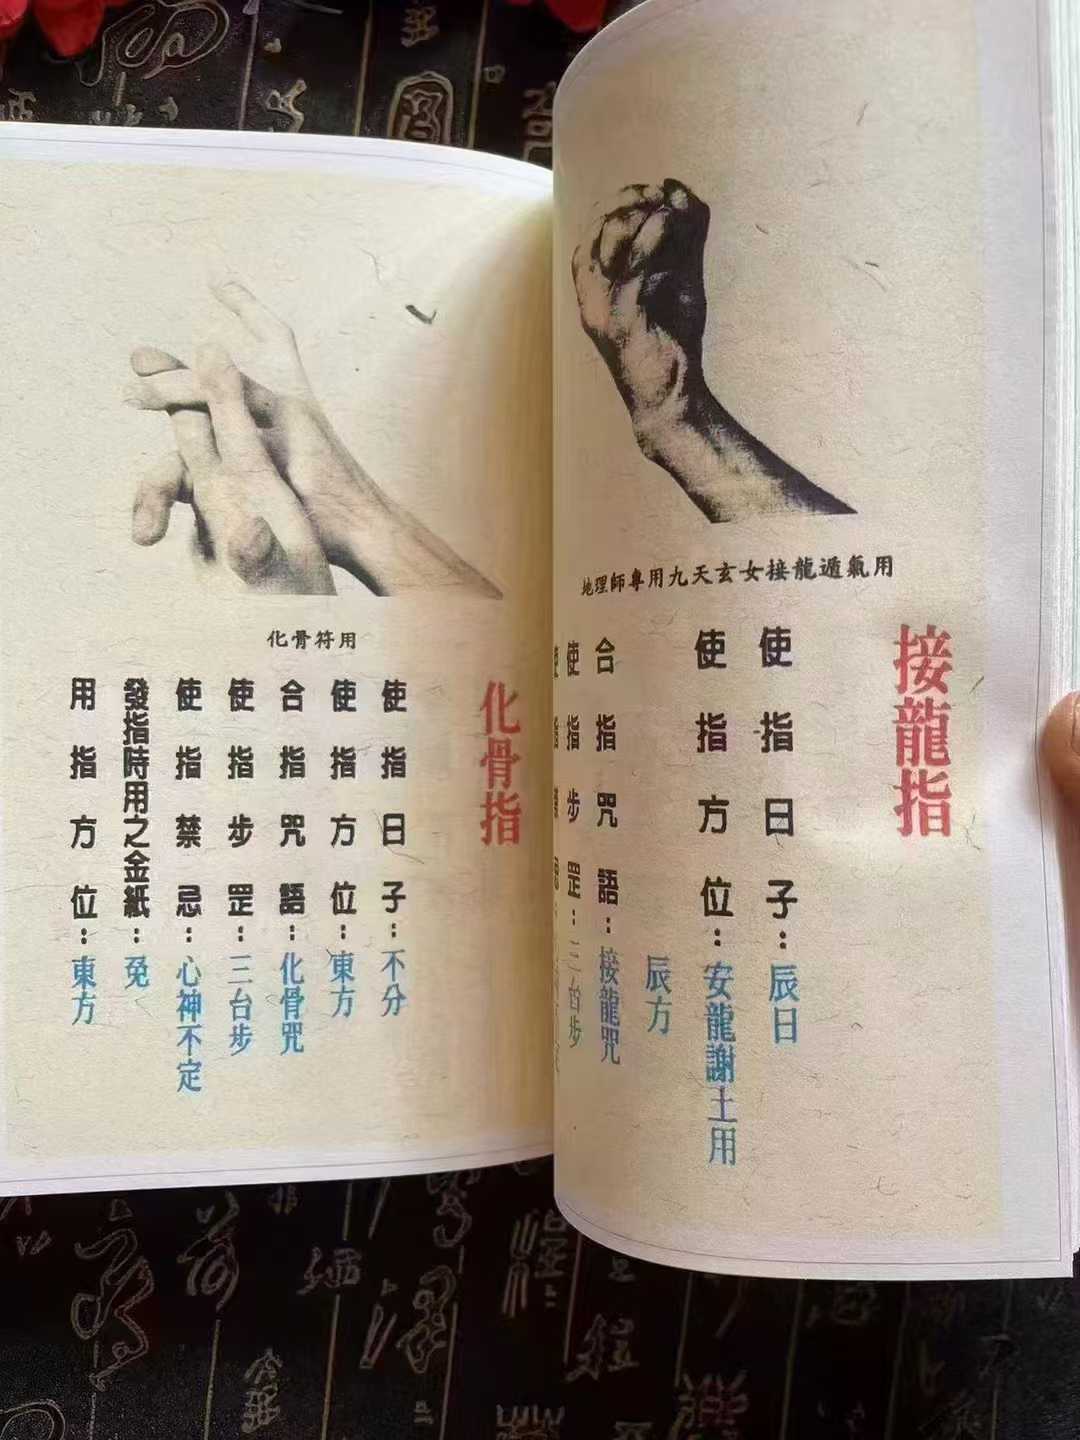 地理師專用九天玄女接龍遁氣用
接龍指
使指日子：辰日
使指方位：安龍謝土用
辰方
合指咒語：接龍咒
使指步罡：三台步
化骨符用
化骨指
使指日子：不分
使指方位：東方
合指咒語：化骨咒
使指步罡：三台步
使指禁忌：心神不定
發指時用之金紙：免
用指方位：東方